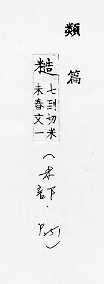 類篇
糙
七到切米
未舂文一
(米部下.